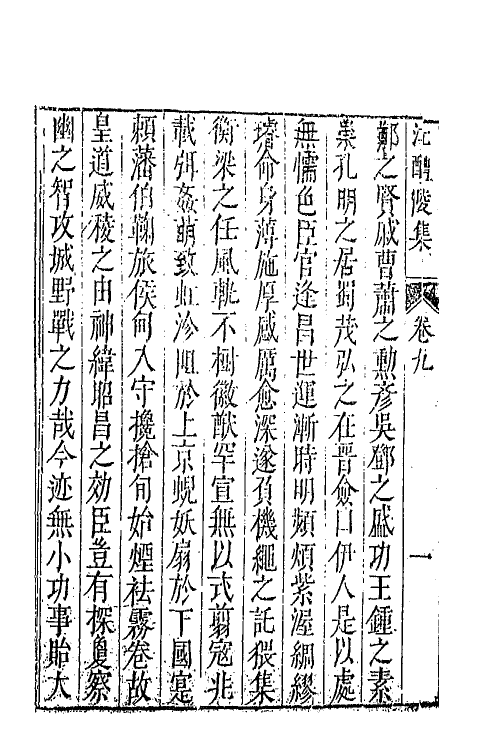 江醴陵集 卷九 一
鄭之賢戚曹蕭之勲彦吳鄧之盛功王鍾之素
業孔明之居蜀茂弘之在晉僉曰伊人是以處
無懦色臣官逢昌世運漸時明頻煩紫渥綢繆
璿命身薄施厚感厲愈深遂負機繩之託猥集
衡梁之任風軌不樹徽猷罕宣無以式翦寇兆
載弭姦萌致虹沴阻於上京蜺妖扇於下國寔
頼藩伯鞠旅侯甸入守攙搶旬始煙袪霧卷故
皇道威稜之由神緯昭昌之効臣豈有探敻察
幽之智攻城野戰之力哉今迹無小功事貽大